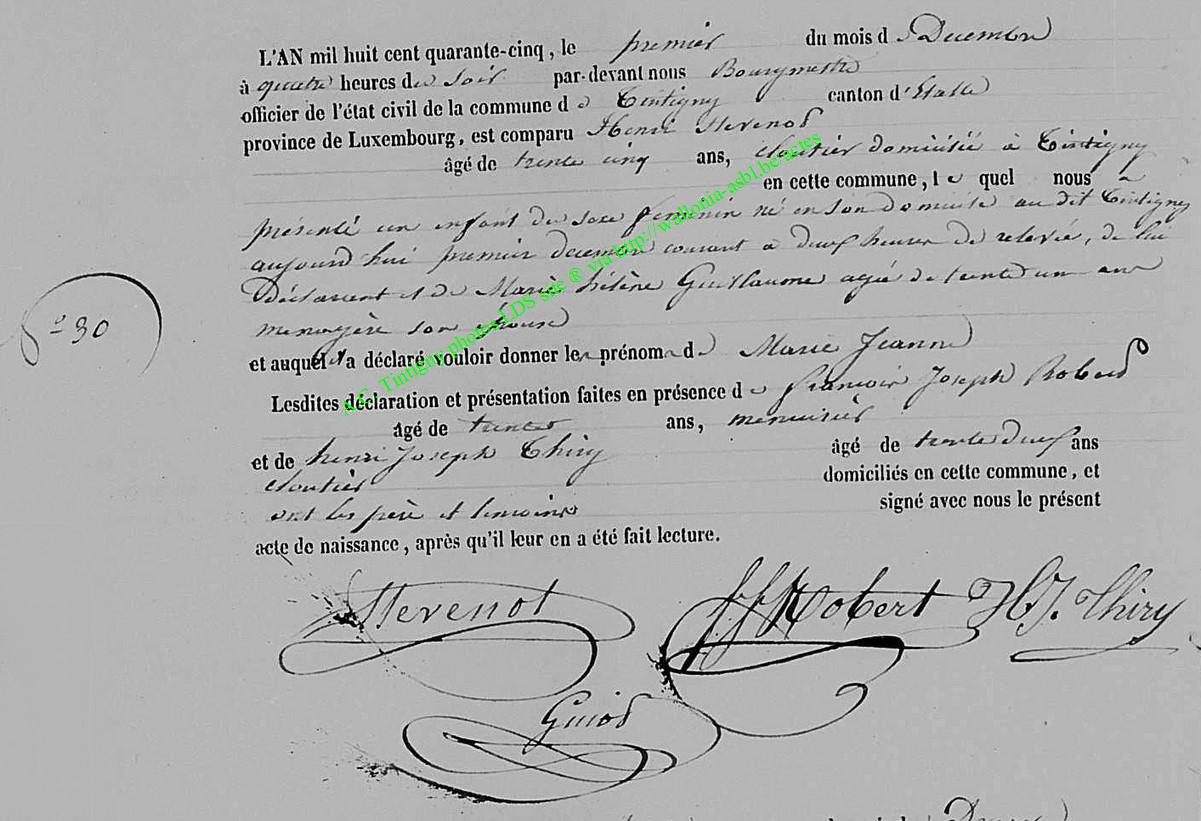 L'AN mil huit cent quarante-cinq, le premier du mois d e Decembre
à quatre heures du soir par-devant nous Bourgmestre
officier de l'état civil de la commune d e Tintigny canton d'Etalle
province de Luxembourg, est comparu Henri Stevenot
âgé de trente cinq ans, cloutier domicilié à Tintigny
en cette commune, l e quel nous a
présenté un enfant du sexe feminin né en son domicile au dit Tintigny
aujourd'hui premier decembre courant a deux heures de relevée, de lui
Déclarant et de Marie hélène Guillaume agée de trente un ans
menagère son épouse
et auquel il a déclaré vouloir donner les prénoms de Marie Jeanne
Lesdites déclaration et présentation faites en présence d e françois Joseph Robert
âgé de trente ans, menuisier
et de henri Joseph Thiry âgé de trente deux ans
cloutier domiciliés en cette commune, et
ont les père et temoins signé avec nous le présent
acte de naissance, après qu'il leur en a été fait lecture.
N° 30
Stevenot
ffRobert HJ. Thiry
Guiot
A.C. Tintigny photos LDS site ® via http://wallonia-asbl.be/actes